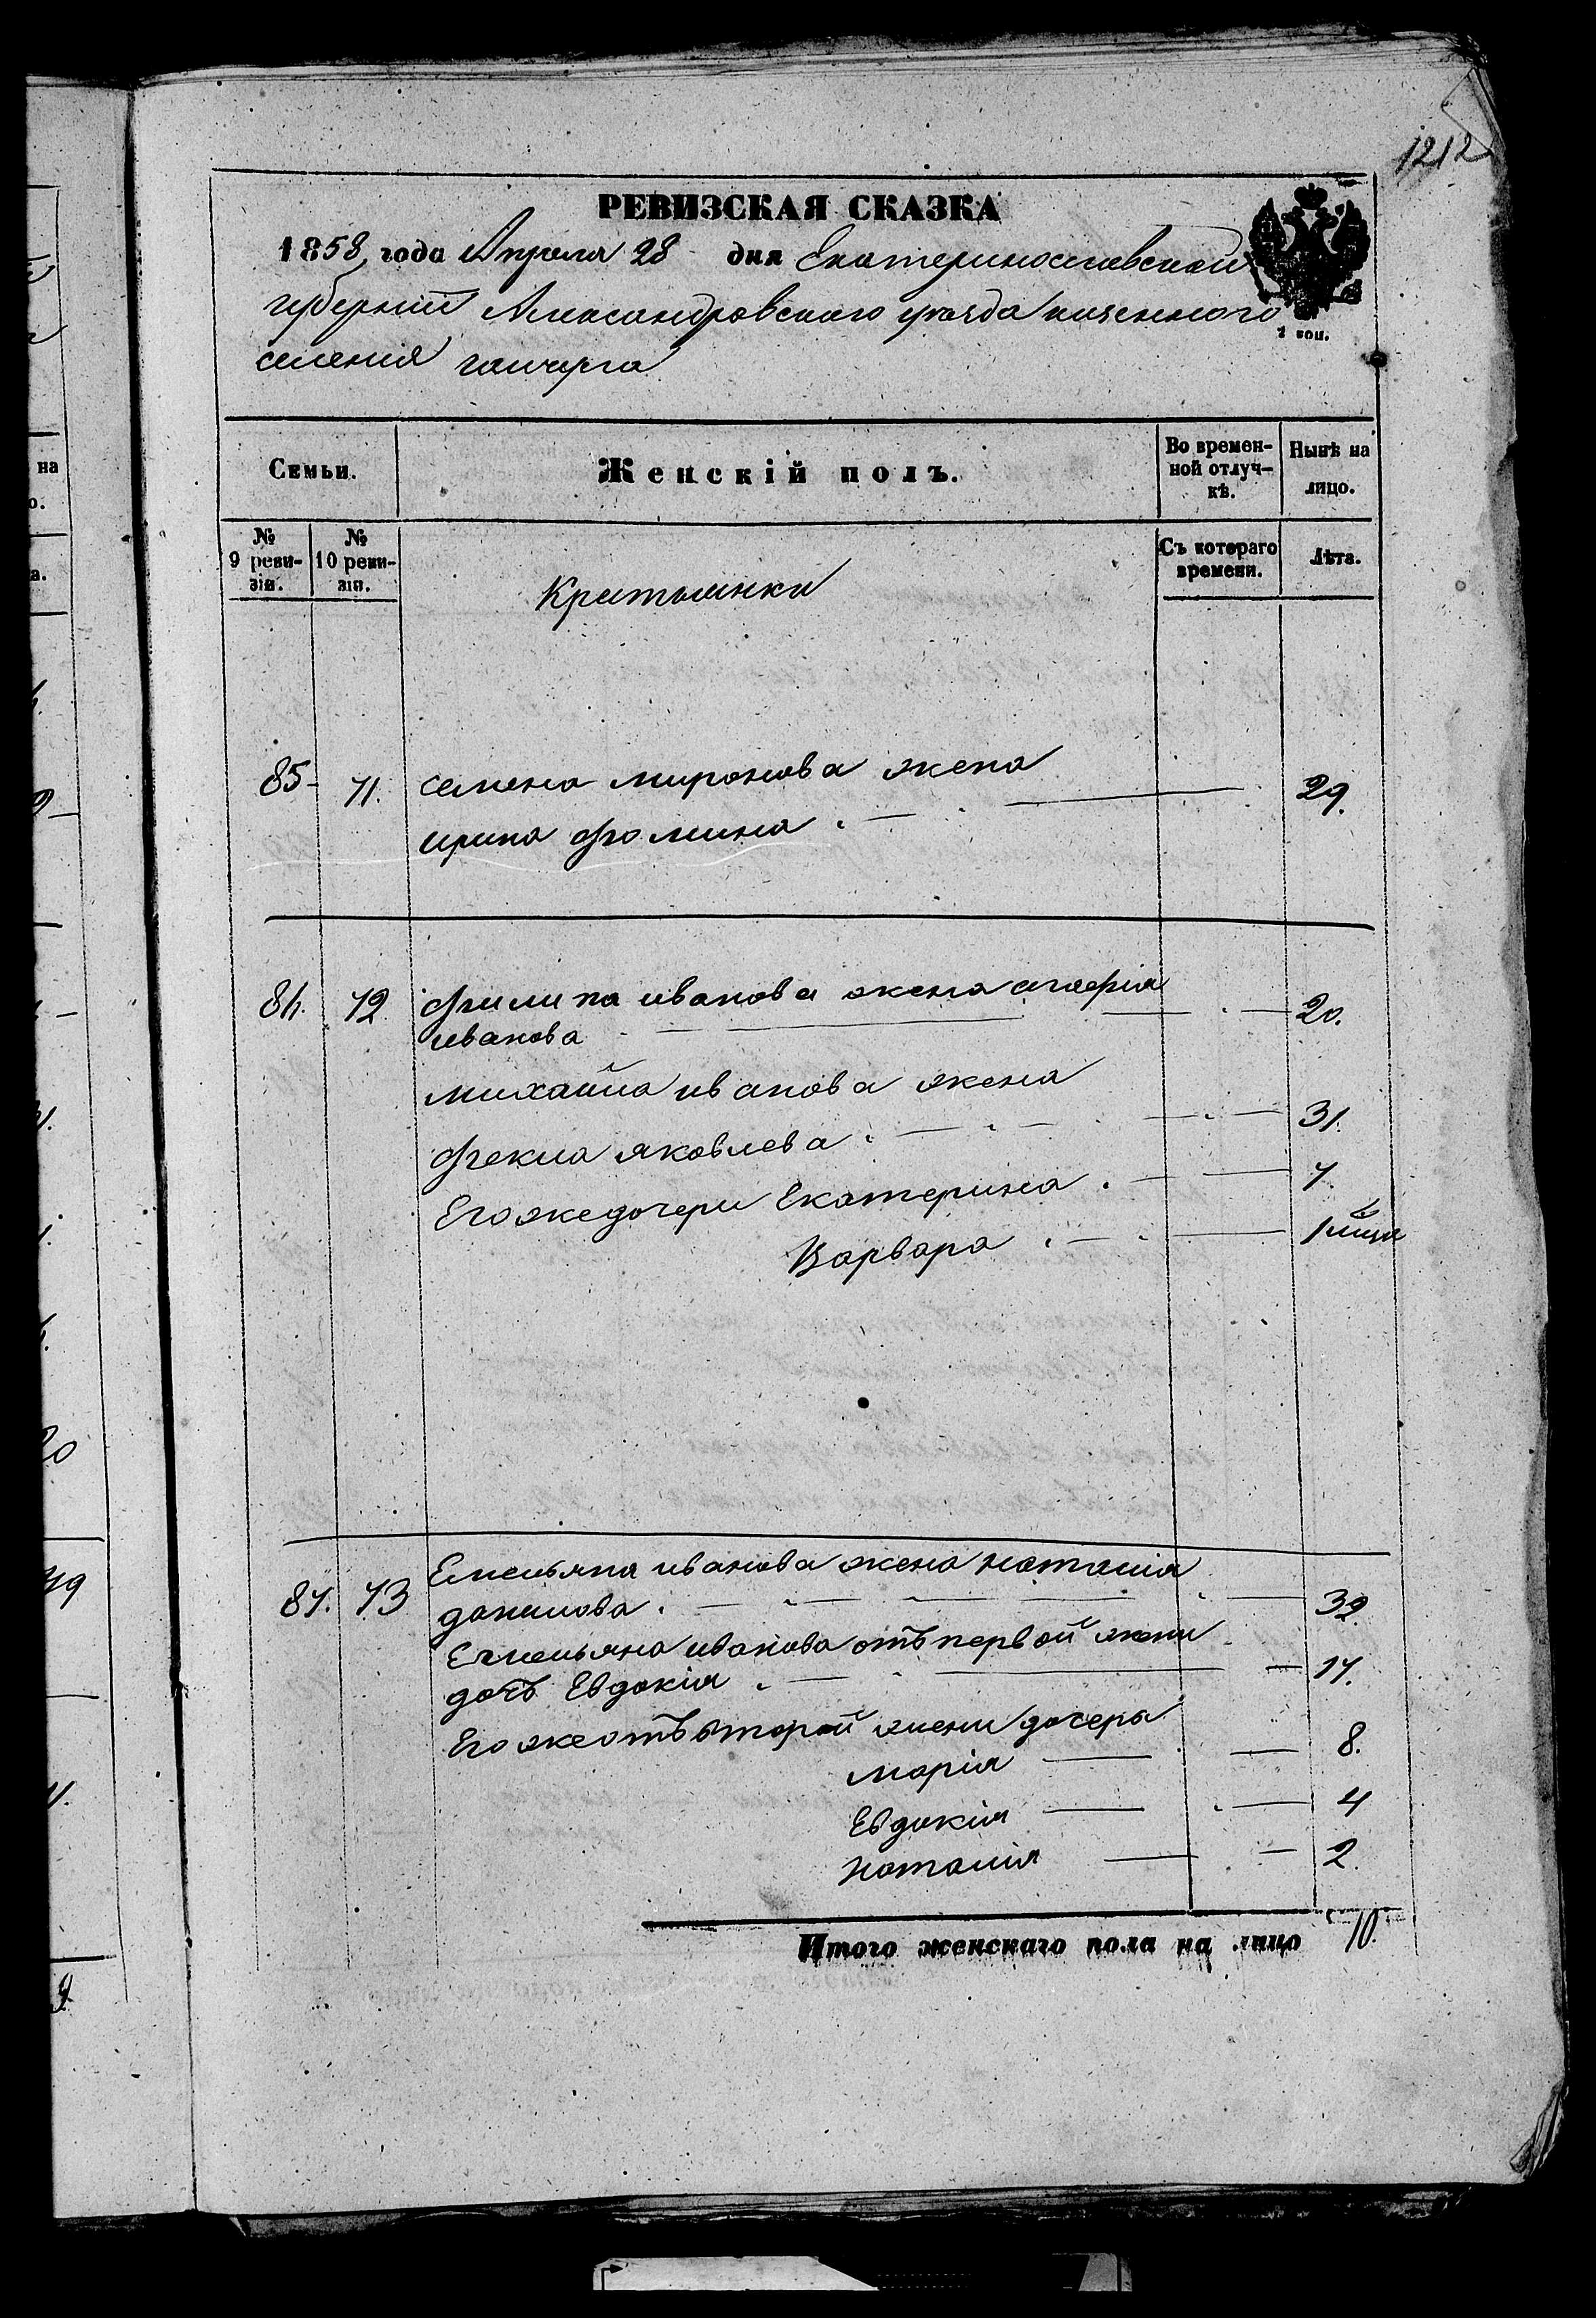 1212
РЕВИЗСКАЯ СКАЗКА
1858 года Апреля 28 дня Екатеринославской
губернии Александровского уезда казенного
селения гайчура
2 коп.
Семьи.
Женскій полъ.
Во времен-
ной отлуч-
кѣ.
Нынѣ на
лицо.
№
9 реви-
зіи.
№
10 реви-
зіи.
Съ котораго
времени.
Лѣта.
85 71. семена миронова жена
ирина фомина 29.
86. 72 филипа иванова жена агафія
иванова 20.
михайла иванова жена
фекла яковлева 31.
Его же дочери Екатерина 7
Варвара 1
87. 73 Емельяна иванова жена наталія
данилова 39
Емельяна иванова отъ первой жени
дочь Евдокія 17.
Его же отъ второй жени дочера
марія 8.
Евдокія 4
наталія 2.
Итого женскаго пола на лицо 10.
на
о.
а.